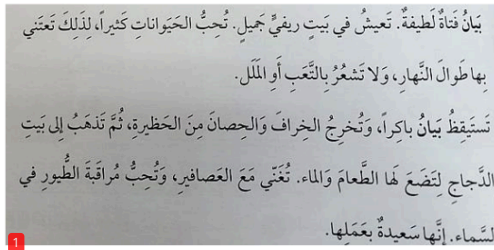 بَيَانُ فَتاةٌ لَطيفةٌ. تَعيشُ في بَيتٍ ريفيٍّ جَميلٍ. تُحِبُّ الحَيَواناتِ كَثيراً، لِذَلِكَ تَعتَني
بِها طَوالَ النَّهارِ، وَلا تَشعُرُ بِالتَّعَبِ أَوِ المَلَل.
تَستَيقِظُ بَيانُ باكِراً، وَتُخرِجُ الخِرافَ وَالحِصانَ مِنَ الحَظيرةِ، ثُمَّ تَذهَبُ إلى بَيتِ
الدَّجاجِ لِتَضَعَ لَها الطَّعامَ وَالماء. تُغَنّي مَعَ العَصافيرِ، وَتُحِبُّ مُراقَبةَ الطُّيورِ في
لسَّماء. إنَّها سَعيدةٌ بِعَمَلِها.
1